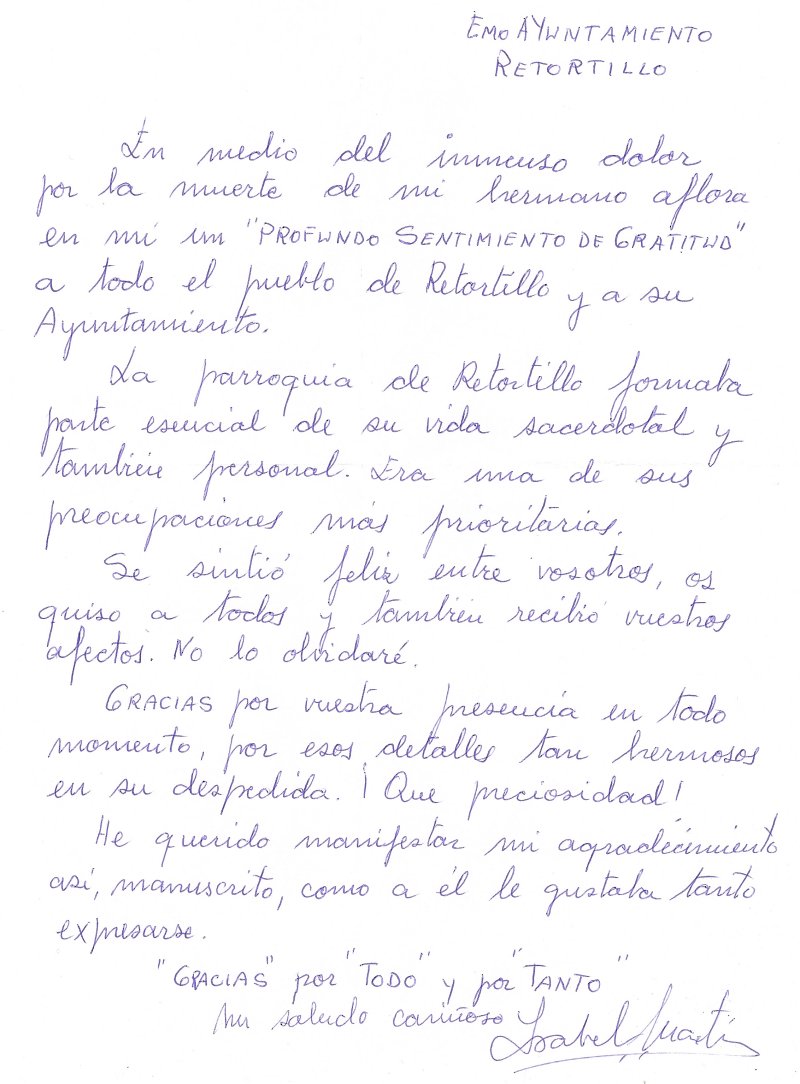 EMO AYUNTAMIENTO
RETORTILLO
En medio del inmenso dolor
por la muerte de mi hermano aflora
en mí un "PROFUNDO SENTIMIENTO DE GRATITUD"
a todo el pueblo de Retortillo y a su
Ayuntamiento.
La parroquia de Retortillo formaba
parte esencial de su vida sacerdotal y
también personal. Era una de sus
preocupaciones más prioritarias.
Se sintió feliz entre vosotros, os
quiso a todos y también recibió vuestros
afectos. No lo olvidaré.
GRACIAS por vuestra presencia en todo
momento, por esos detalles tan hermosos
en su despedida. ¡Que preciosidad!
He querido manifestar mi agradecimiento
así, manuscrito, como a él le gustaba tanto
expresarse.
"GRACIAS" por "TODO" y por "TANTO"
Un saludo cariñoso Isabel Martín